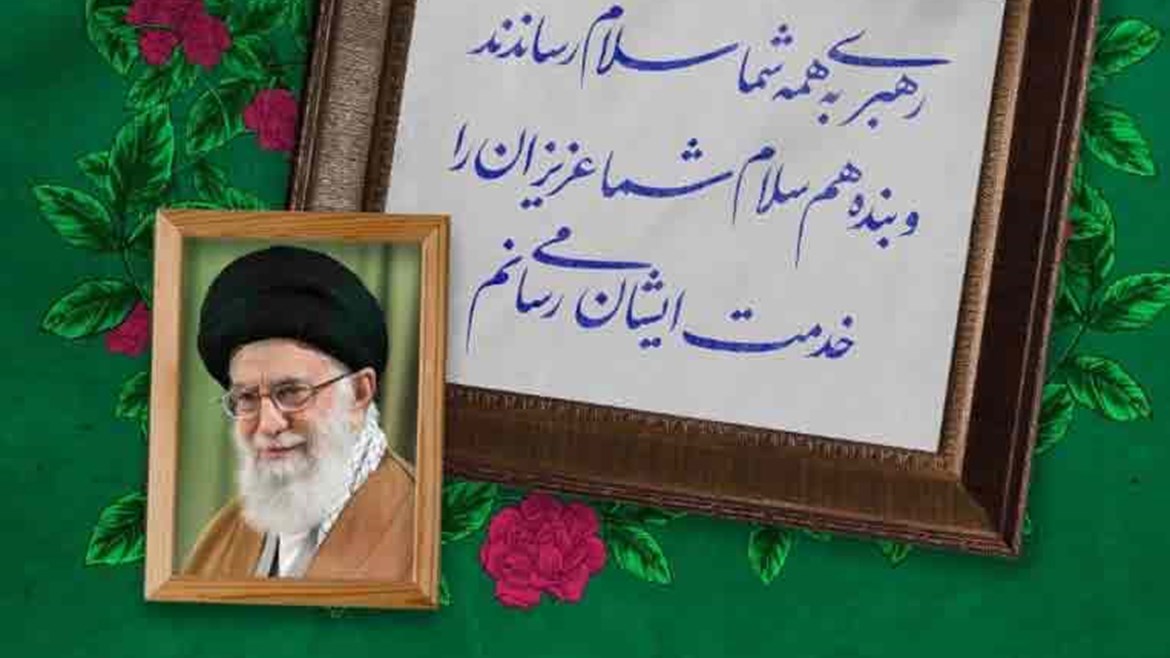 رهبری به همه شما سلام رساندند
و بنده هم سلام شما عزیزان را
خدمت ایشان می رسانم